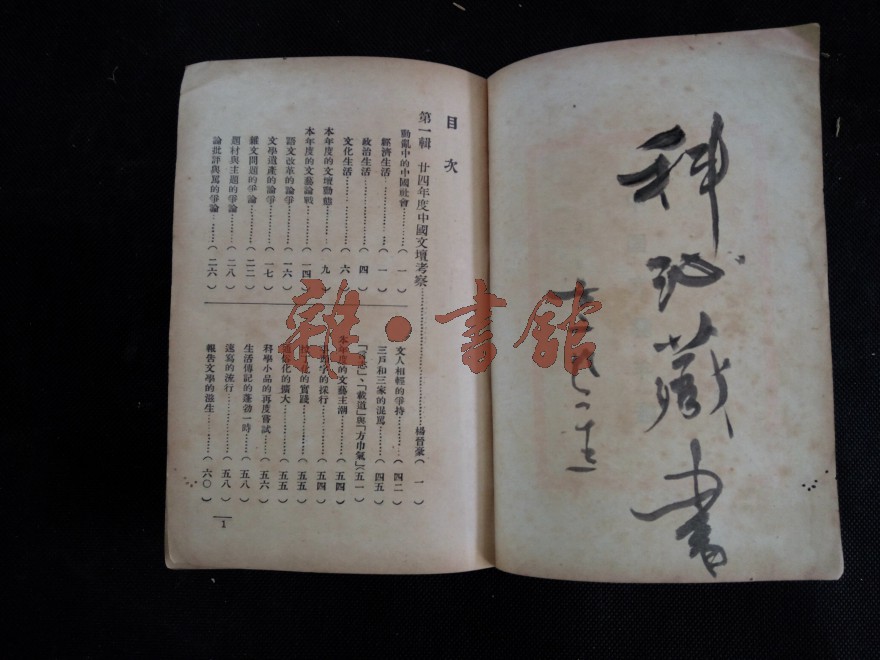 科
藏書
目次
第一輯 廿四年度中國文壇考察……楊晉豪(一)
動亂中的中國社會……(一)
經濟生活……(一)
政治生活……(四)
文化生活……(六)
本年度的文壇動態……(九)
本年度的文藝論戰……(一四)
語文改革的論爭……(一六)
文學遺產的論爭……(一七)
雜文問題的爭論……(二二)
題材與主題的爭論……(二八)
論批評與罵的爭論……(二六)
文人相輕的爭持……(四二)
三戶和三家的混罵……(四五)
「載道」與「方巾氣」(五一)
本年度的文藝主潮……(五四)
的採行……(五四)
化的實踐……(五五)
俗化的擴大……(五五)
科學小品的再度嘗試……(五六)
生活傳記的蓬勃一時……(五八)
速寫的流行……(五八)
報告文學的滋生……(六〇)
1
雜·書館